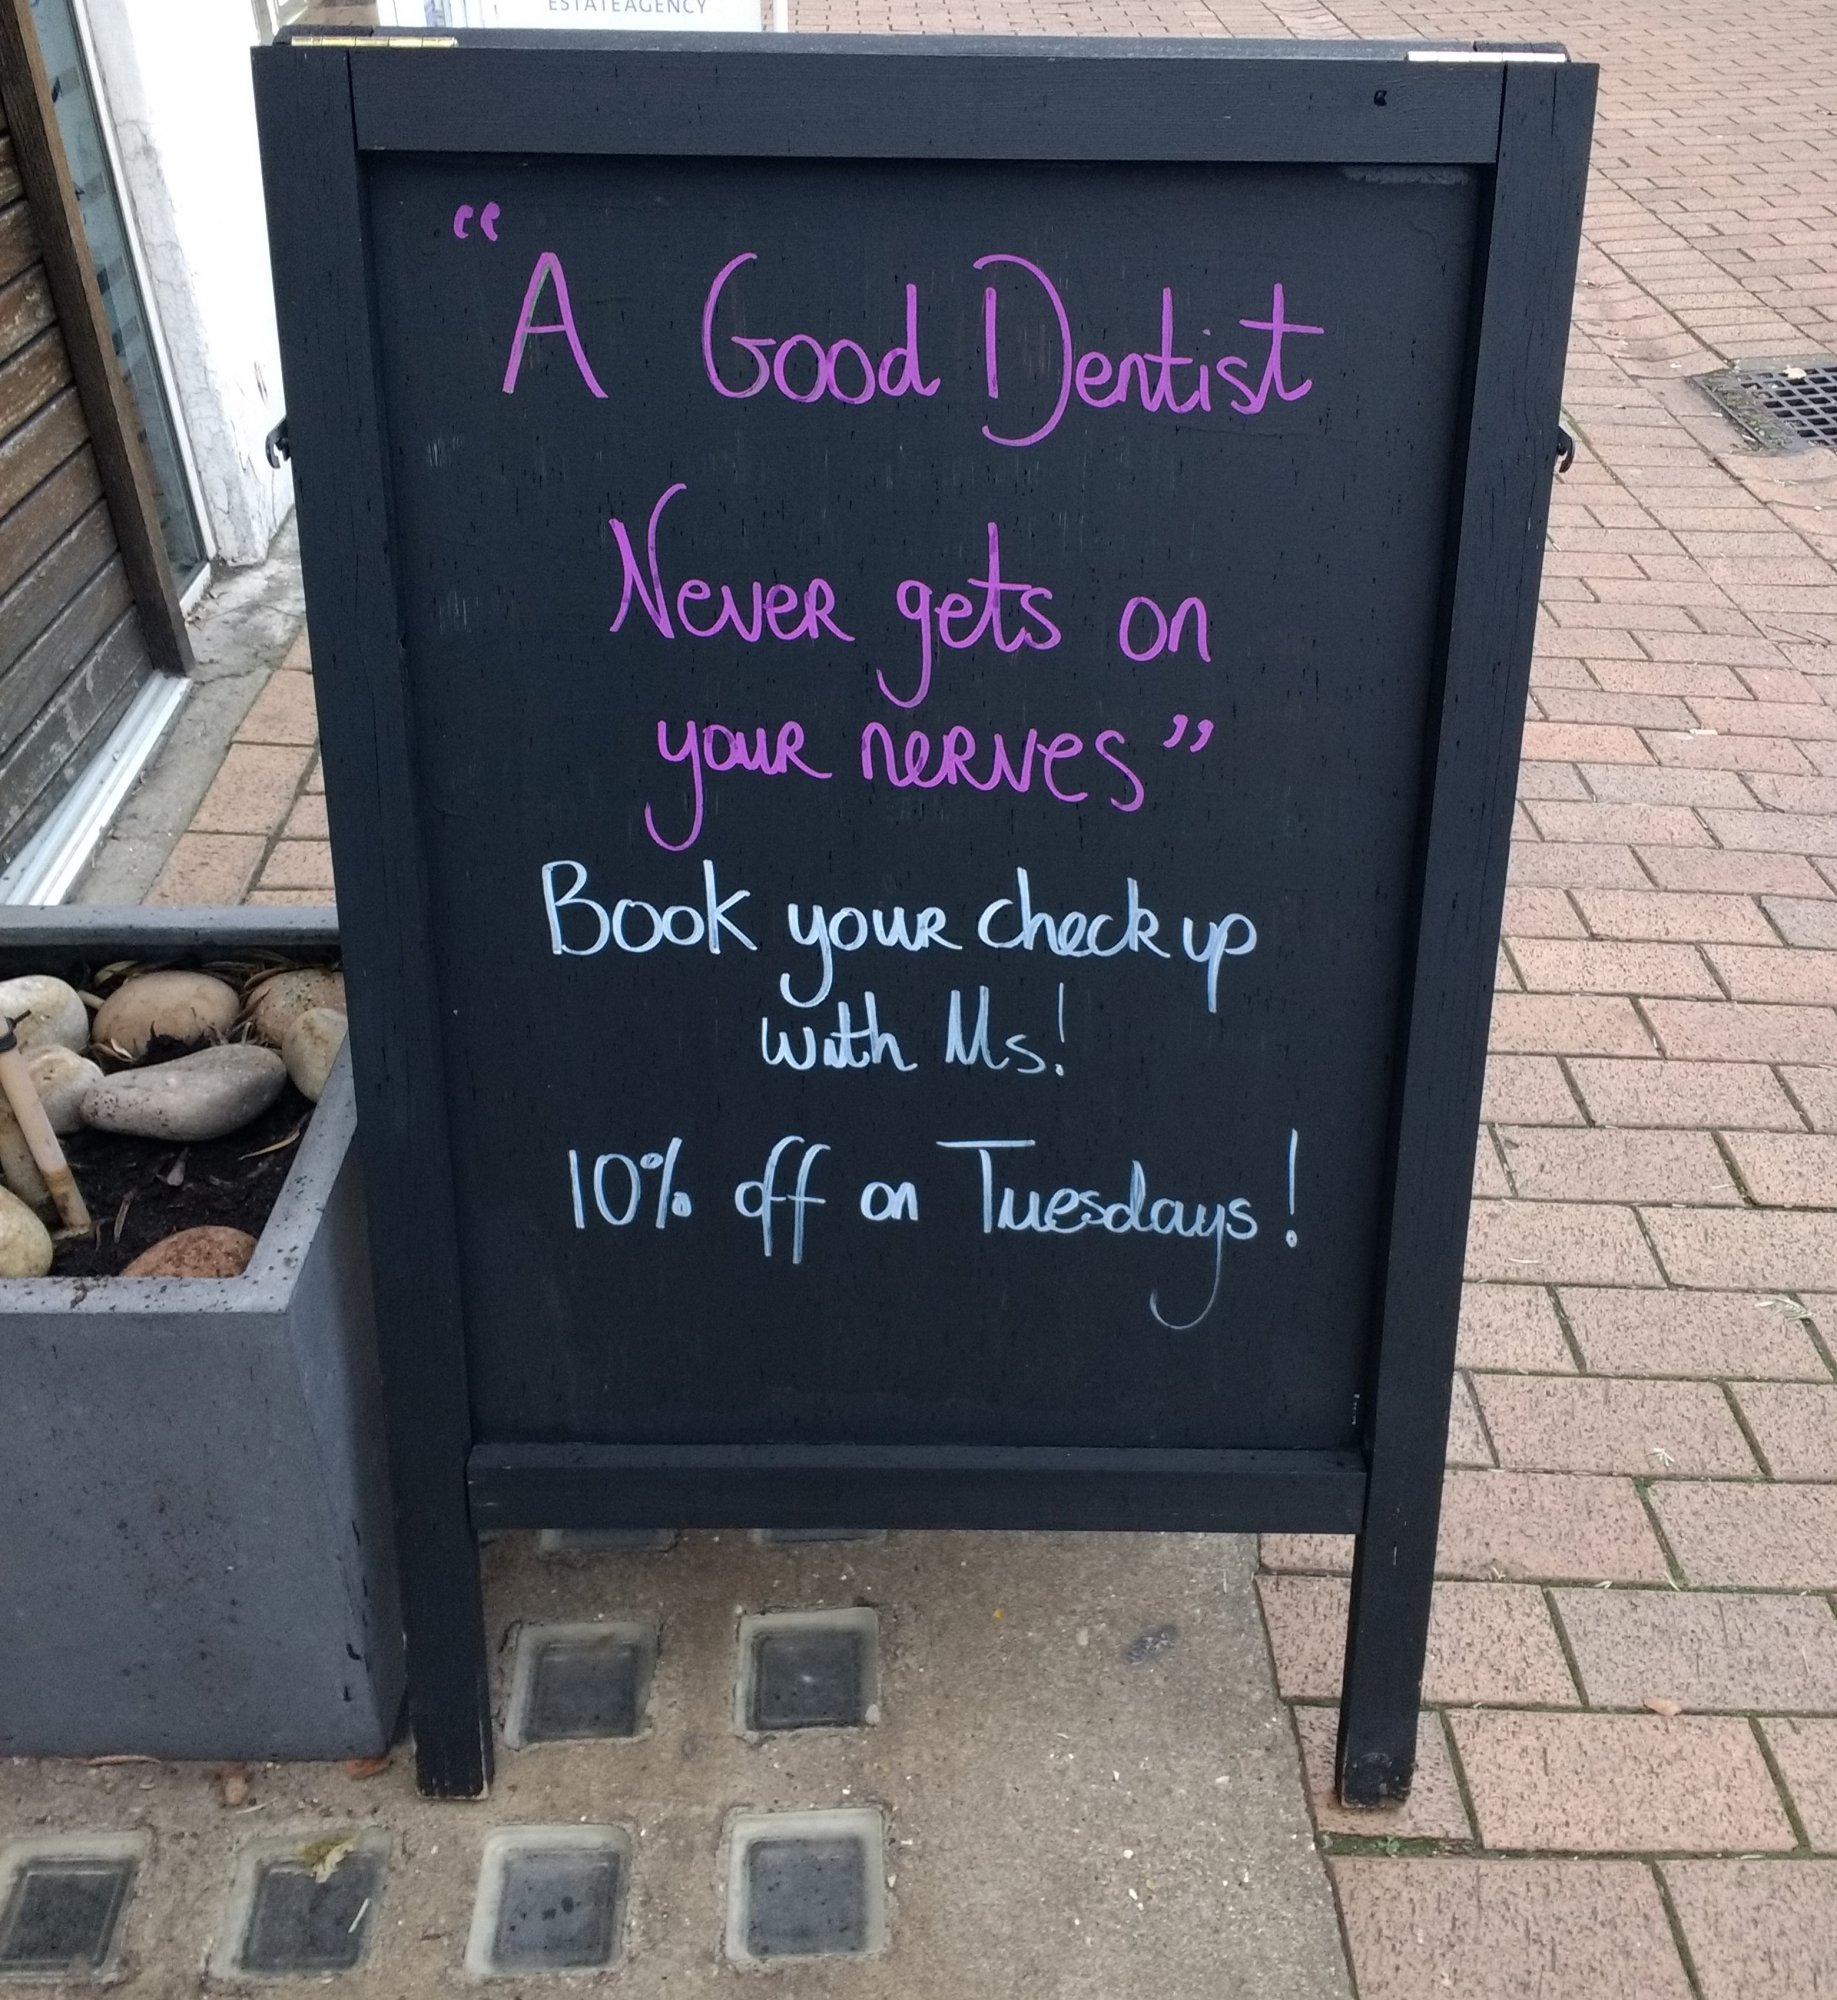 ESTATEAGENCY
“A Good Dentist
Never gets on
your nerves”
Book your check up
with Ms!
10% off on Tuesdays!